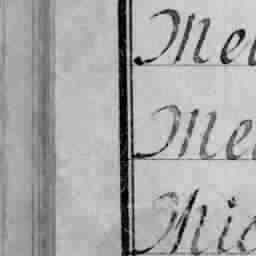 Mel
Me
Mic